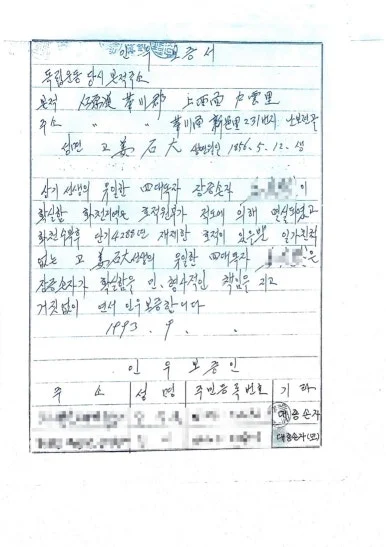 인우보증서
독립운동 당시 본적주소
본적 江原道 華川郡 上西面 多雲里
주소 〃 〃 華川面 新邑里 231번지
성명 고 姜石大 생년월일 1856. 5. 12. 생
상기 선생의 유일한 四대독자 장증손자 이
확실함 화천지역도 호적원부가 적도에 의해 멸실되었고
화천수복후 단기 4288년 재제한 호적이 있을뿐 일가친척
없는 고 姜石大선생의 유일한 四대독자 은
장증손자가 확실함을 민.형사적인 책임을 지고
거짓없이 연서 인우보증합니다
1993. 9. .
인우보증인
주소 성명 주민등록번호 기타
증손자
증손자